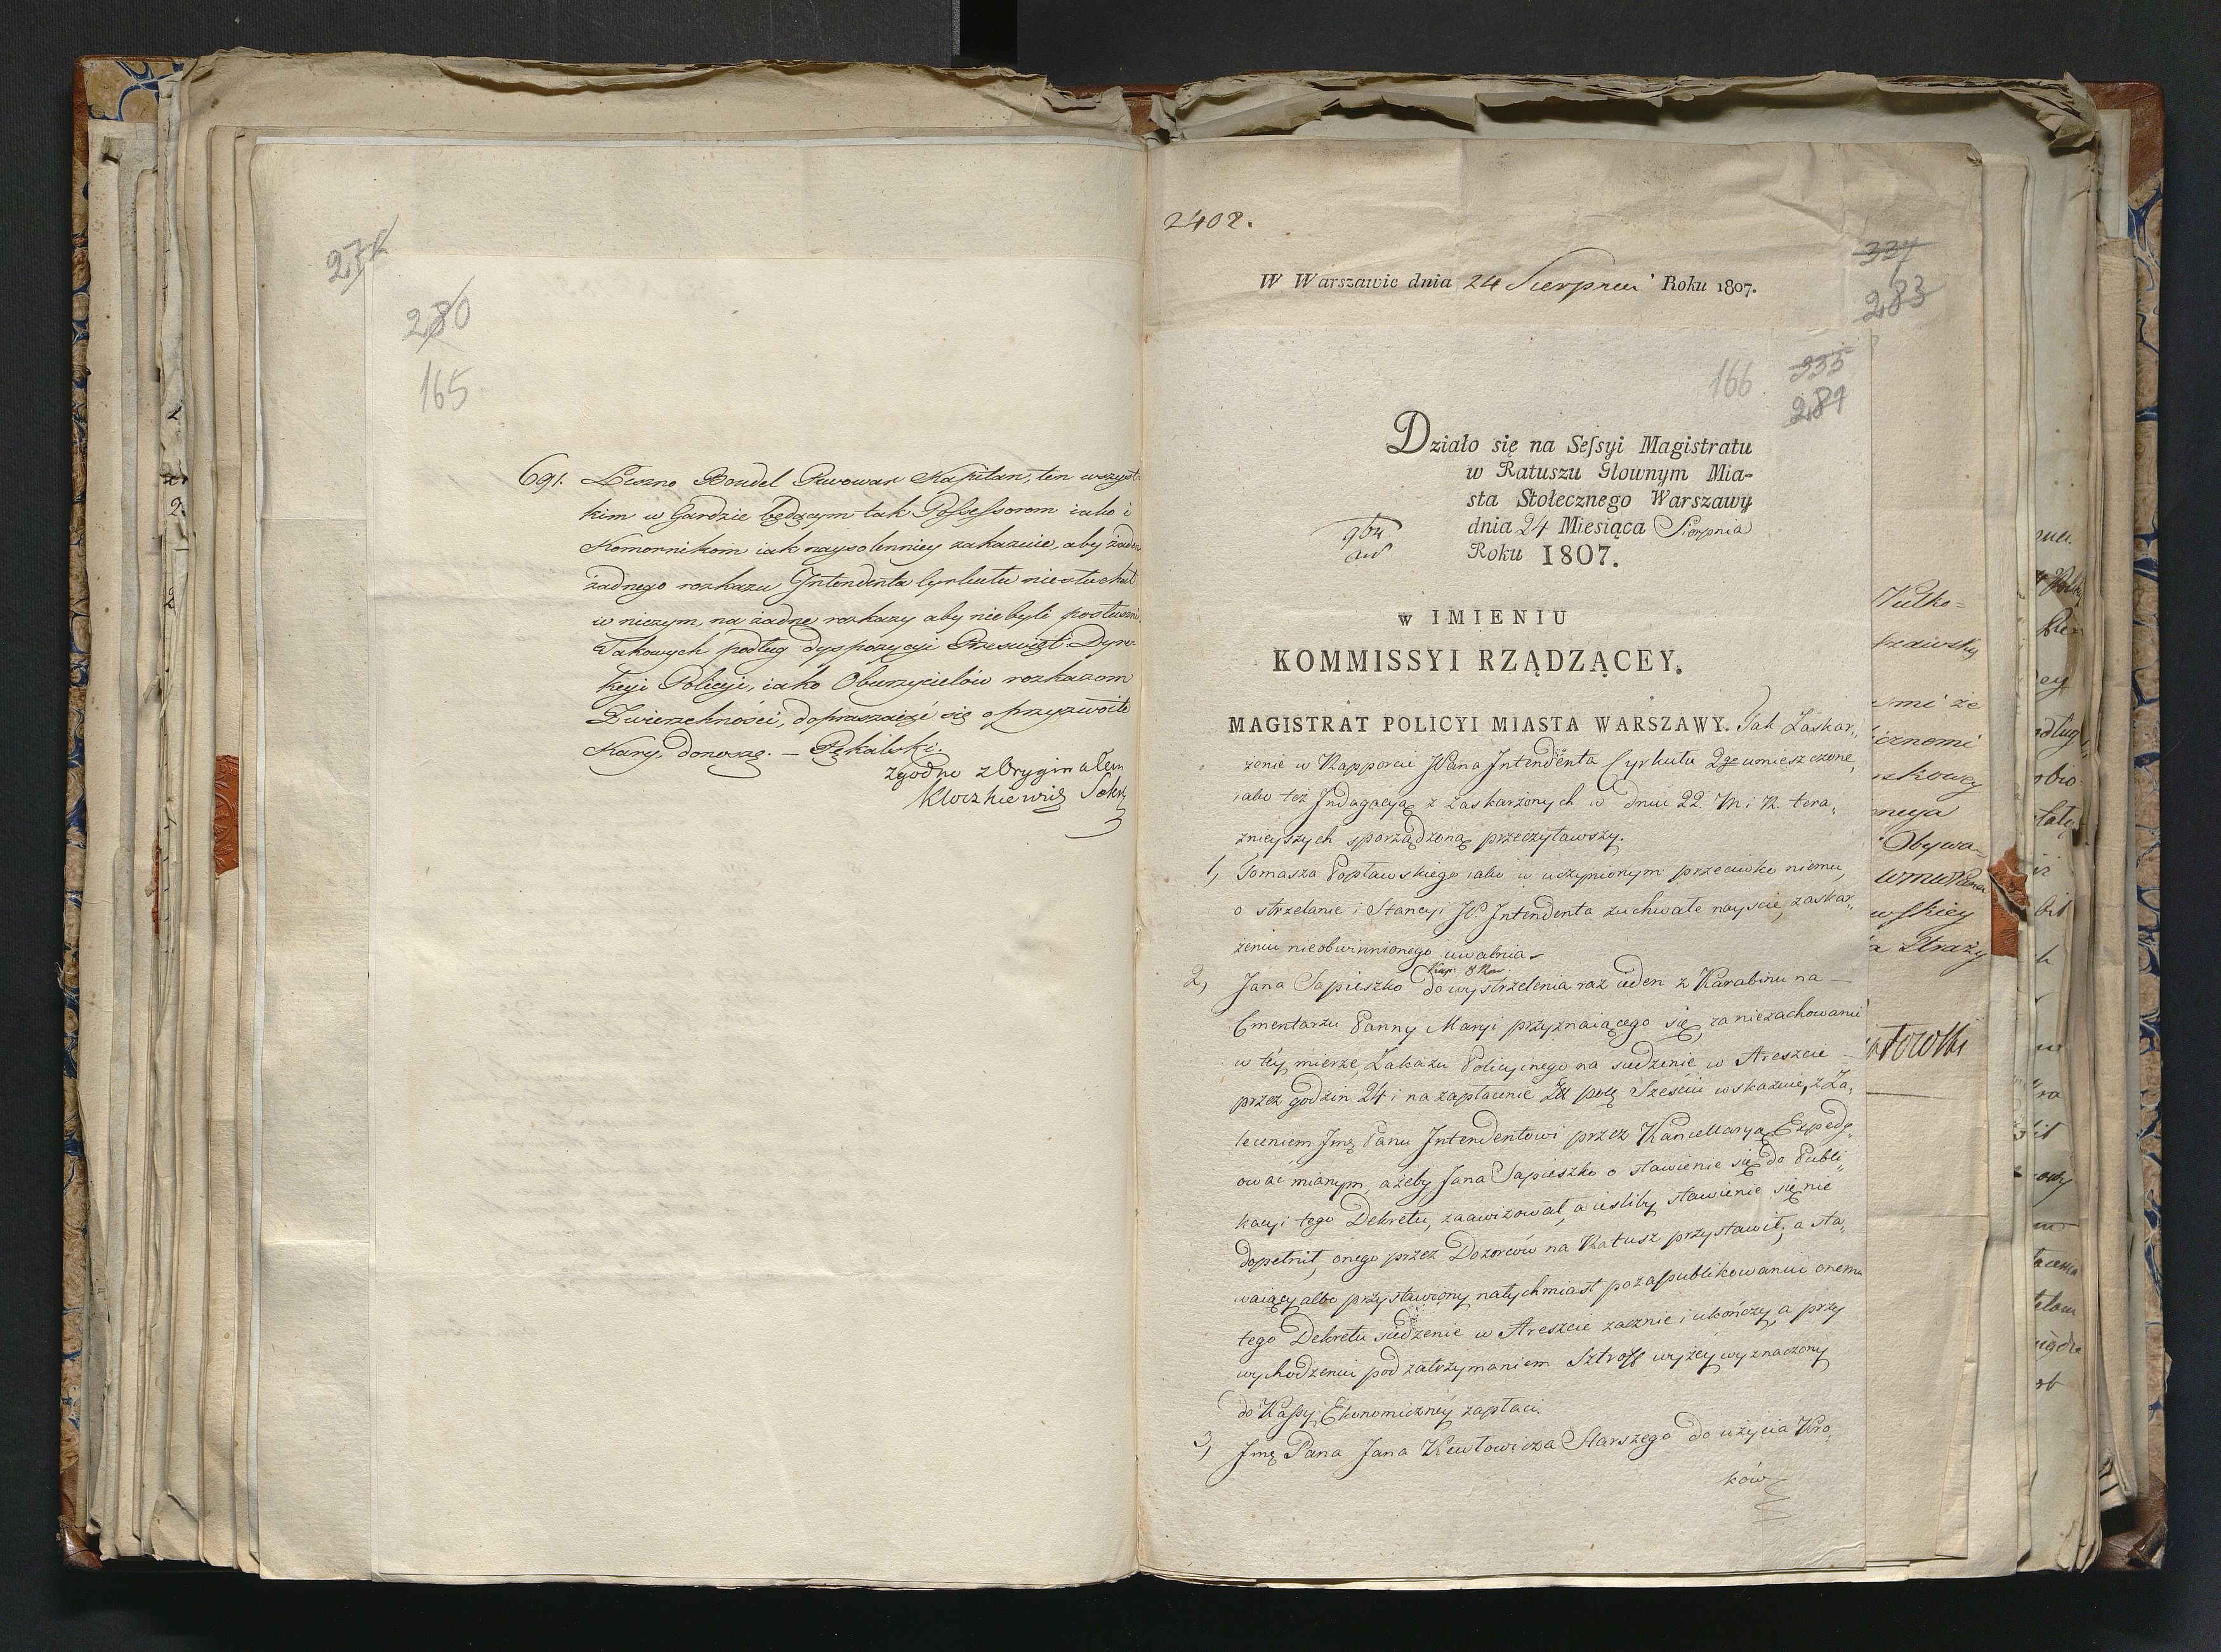 274
280
165
691. Leszno Boudel Piwowar Kapitan, ten wszyst-
kim w Gardzie będącym tak Possessorom iako i
Komornikom iak naysolenniey zakazuie, aby żaden
żadnego rozkazu Intendenta Cyrkułu niesłuchał
w niczym, na żadne rozkazy aby niebyli posłuszni.
Takowych podług dyspozycyi Prześwięt. Dyrek-
kcyi Policyi, iako Oburzycielów rozkazom
Zwierzchności, dopraszaiąć się o przyzwoite
Kary, donoszę. — Pękalski.
zgodno z Oryginałem
Kloczkiewicz Sekr
2408.
W Warszawie dnia 24 Sierpnia Roku 1807.
337
283
166
335
281
Działo się na Seſsyi Magistratu
w Ratuszu Głownym Mia-
sta Stołecznego Warszawy
dnia 24 Miesiąca Sierpnia
Roku 1807.
w IMIENIU
KOMMISSYI RZĄDZĄCEY.
MAGISTRAT POLICYI MIASTA WARSZAWY. Tak Zaskar„
żenie w Rapporcie JPana Intendenta Cyrkułu 2go umieszczone,
iako też Indagacyą z zaskarżonych w dniu 22. M i R. tera„
znieyszych sporządzoną przeczytawszy.
1, Tomasza Popławskiego iako w uczynionym przeciwko niemu,
o strzelanie i Stancyi JP. Intendenta zuchwałe nayscie, zaskar„
żeniu nieobwinnionego uwalnia.
2, Jana Sapieszko do wystrzelenia raz ieden z Karabinu na —
Cmentarzu Panny Maryi przyznaiącego się, za niezachowanie
w téy mierze, Zakazu Policyinego na siedzenie w Areszcie —
przez godzin 24 i na zapłacenie Zł pol Sześciu wskazuie, z Za„
leceniem Jmę Panu Intendentowi przez Kancellaryą Expedy„
ować mianym, ażeby Jana Sapieszko o stawienie się do Publi„
kacyi tego Dekretu, zaawizował, a iesliby stawienie się nie
dopełnił, onego przez Dozorców na Ratusz przystawił; a sta„
waiący albo przystawiony natychmiast po zapublikowaniu onemu
tego Dekretu siedzenie w Areszcie zacznie i ukończy, a przy
wychodzeniu pod zatrzymaniem Sztroff wyżéy wyznaczony
do Kaſsy Ekonomicznéy zapłaci.
3, Jmę Pana Jana Kewłowicza Starszego do użycia Kro„
ków